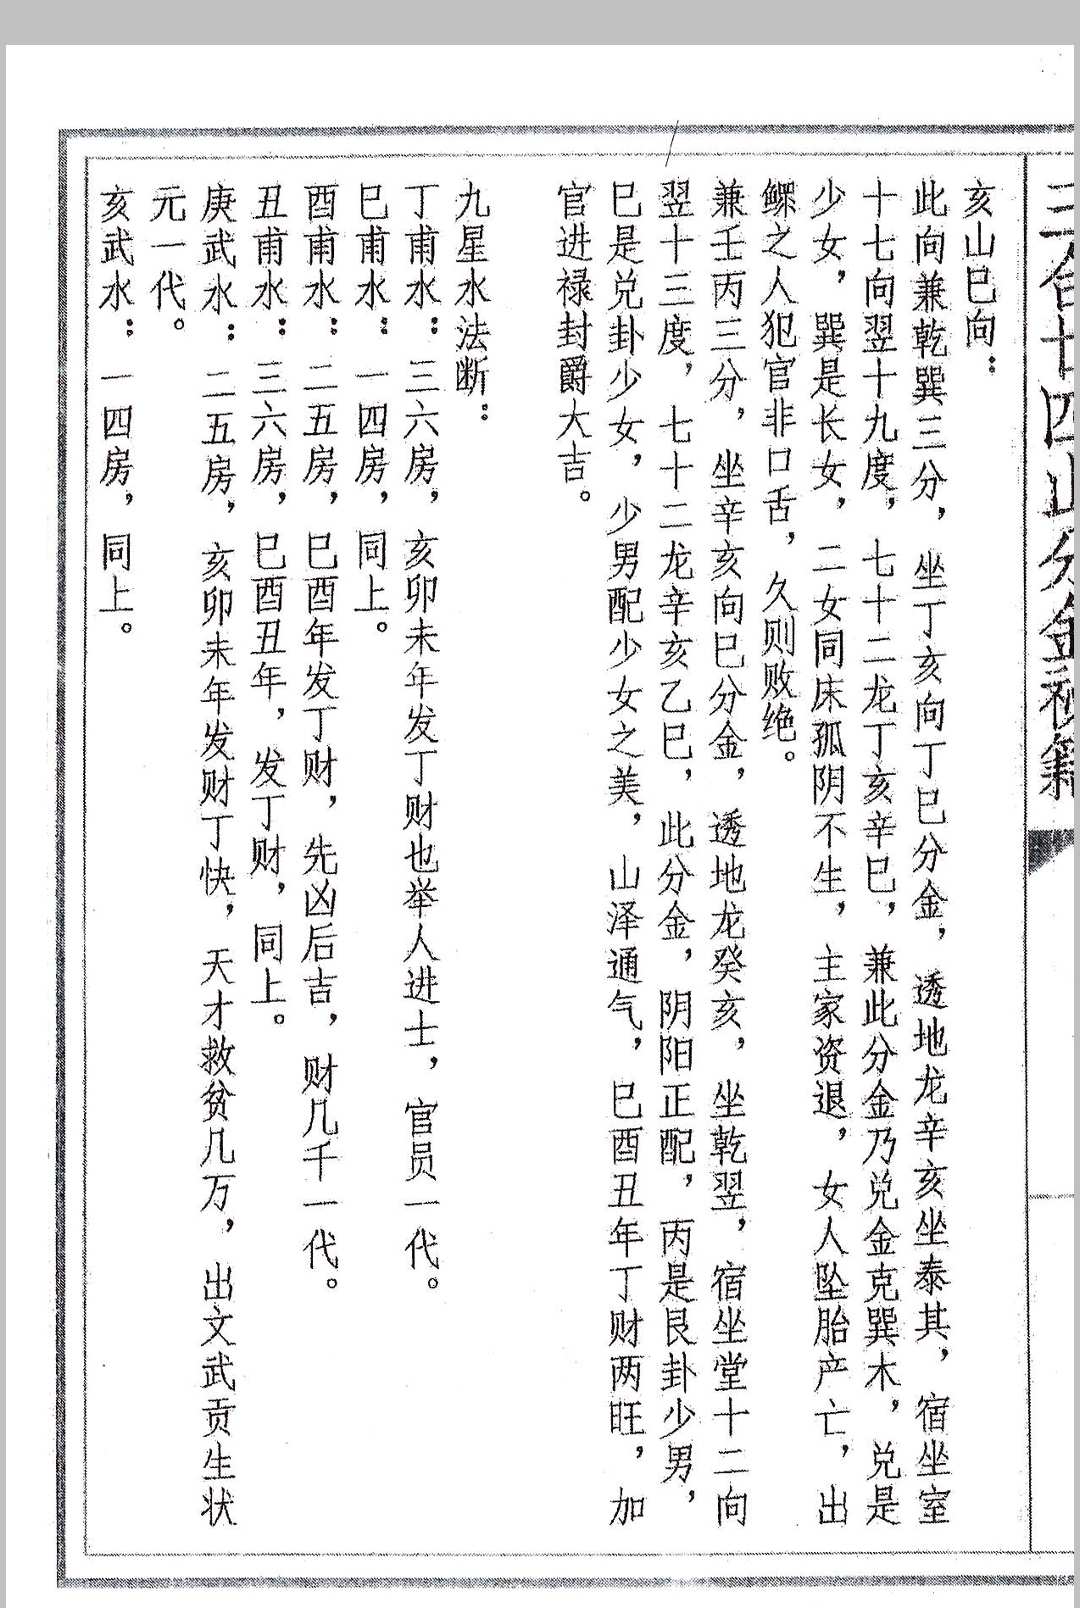 三合廿四山分金秘籍
亥山巳向：
此向兼乾巽三分，坐丁亥向丁巳分金，透地龙辛亥坐泰其，宿坐室
十七向翌十九度，七十二龙丁亥辛巳，兼此分金乃兑金克巽木，兑是
少女，巽是长女，二女同床孤阴不生，主家资退，女人坠胎产亡，出
鳏之人犯官非口舌，久则败绝。
兼壬丙三分，坐辛亥向巳分金，透地龙癸亥，坐乾翌，宿坐堂十二向
翌十三度，七十二龙辛亥乙巳，此分金，阴阳正配，丙是艮卦少男，
巳是兑卦少女，少男配少女之美，山泽通气，巳酉丑年丁财两旺，加
官进禄封爵大吉。
九星水法断：
丁甫水：三六房，亥卯未年发丁财也举人进士，官员一代。
巳甫水：一四房，同上。
酉甫水：二五房，巳酉年发丁财，先凶后吉，财几千一代。
丑甫水：三六房，巳酉丑年，发丁财，同上。
庚武水：二五房，亥卯未年发财丁快，天才救贫几万，出文武贡生状
元一代。
亥武水：一四房，同上。